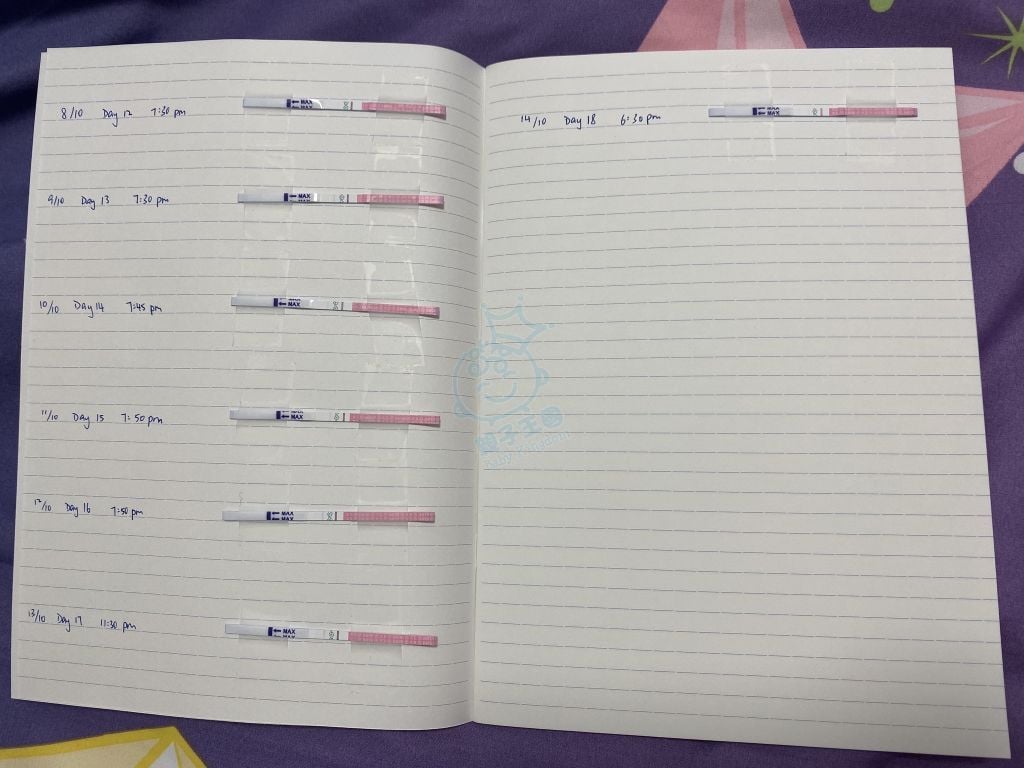 8/10 Day 12 7:30 pm
MAX
MAX
9/10 Day 13 7:30 pm
MAX
10/10 Day 14 7:45 pm
MAX
MAX
11/10 Day 15 7:50 pm
MAX
MAX
12/10 Day 16 7:50 pm
MAX
MAX
13/10 Day 17 11:30 pm
MAX
MAX
14/10 Day 18 6:30 pm
MAX
MAX
親子王國
Baby Kingdom